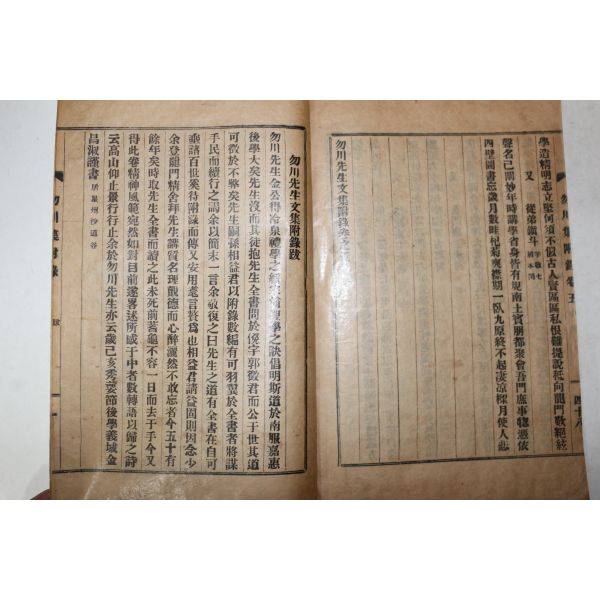 學造精明志立堅何須不似古人賢區區私恨難提說程向龍門敬絕絃
又 從弟鎭斗
聲名已聞妙年時講學省身皆有規南士賓朋都聚會吾門庶事惣憑依
四壁圖書忘歲月數畦杞菊爽襟期一臥九原終不起淒凉樑月使人悲
勿川先生文集附錄卷之五
勿川集附錄 卷五
四十八
勿川先生文集附錄跋
勿川先生金公得冷泉禮學之
理學之訣倡明斯道於南服嘉惠
後學大矣先生沒而其徒抱先生全書問於俛宇郭徵君而公于世其道
可徵於不弊矣先生嗣孫相益君以附錄數編有可羽翼於全書者將謀
手民而續行之謁余以簡末一言余敬復之曰先生之道有全書在自可
垂諸百世奚待附錄而傳又安用耄言贅爲也相益君請益固則因念少
余登龍門精舍拜先生講質名理戴德而心醉灑然不敢忘者今五十有
餘年矣時取先生全書而讀之此未死前蓍龜不容一日而去于手今又
得此卷精神風範宛然如對目前遂畧述所感于中者數轉語以歸之詩
云高山仰止景行行止余於勿川先生亦云歲己亥
節後學義城金
昌淑謹書 居星州沙道谷
勿川集附錄
跋
一